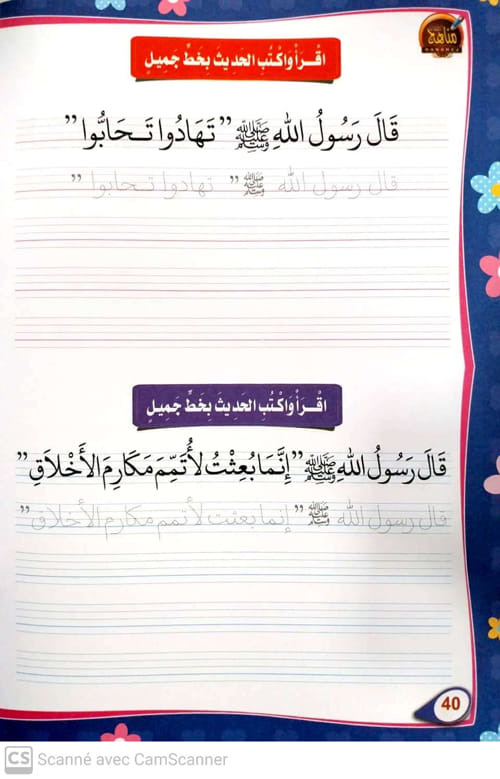 مناهج
MANAHEJ
اقْرَأْ وَاكْتُبِ الحَدِيثَ بِخَطٍّ جَمِيلٍ
قَالَ رَسُولُ اللهِ ﷺ ” تَهَادُوا تَـحَابُّوا ”
قال رسول الله ﷺ ” تهادوا تـحابوا ”
اقْرَأْ وَاكْتُبِ الحَدِيثَ بِخَطٍّ جَمِيلٍ
قَالَ رَسُولُ اللهِ ﷺ ” إِنَّمَا بُعِثْتُ لأُتَمِّمَ مَكَارِمَ الأَخْلَاقِ ”
قال رسول الله ﷺ ” إنما بعثت لأتمم مكارم الأخلاق ”
40
CS Scanné avec CamScanner